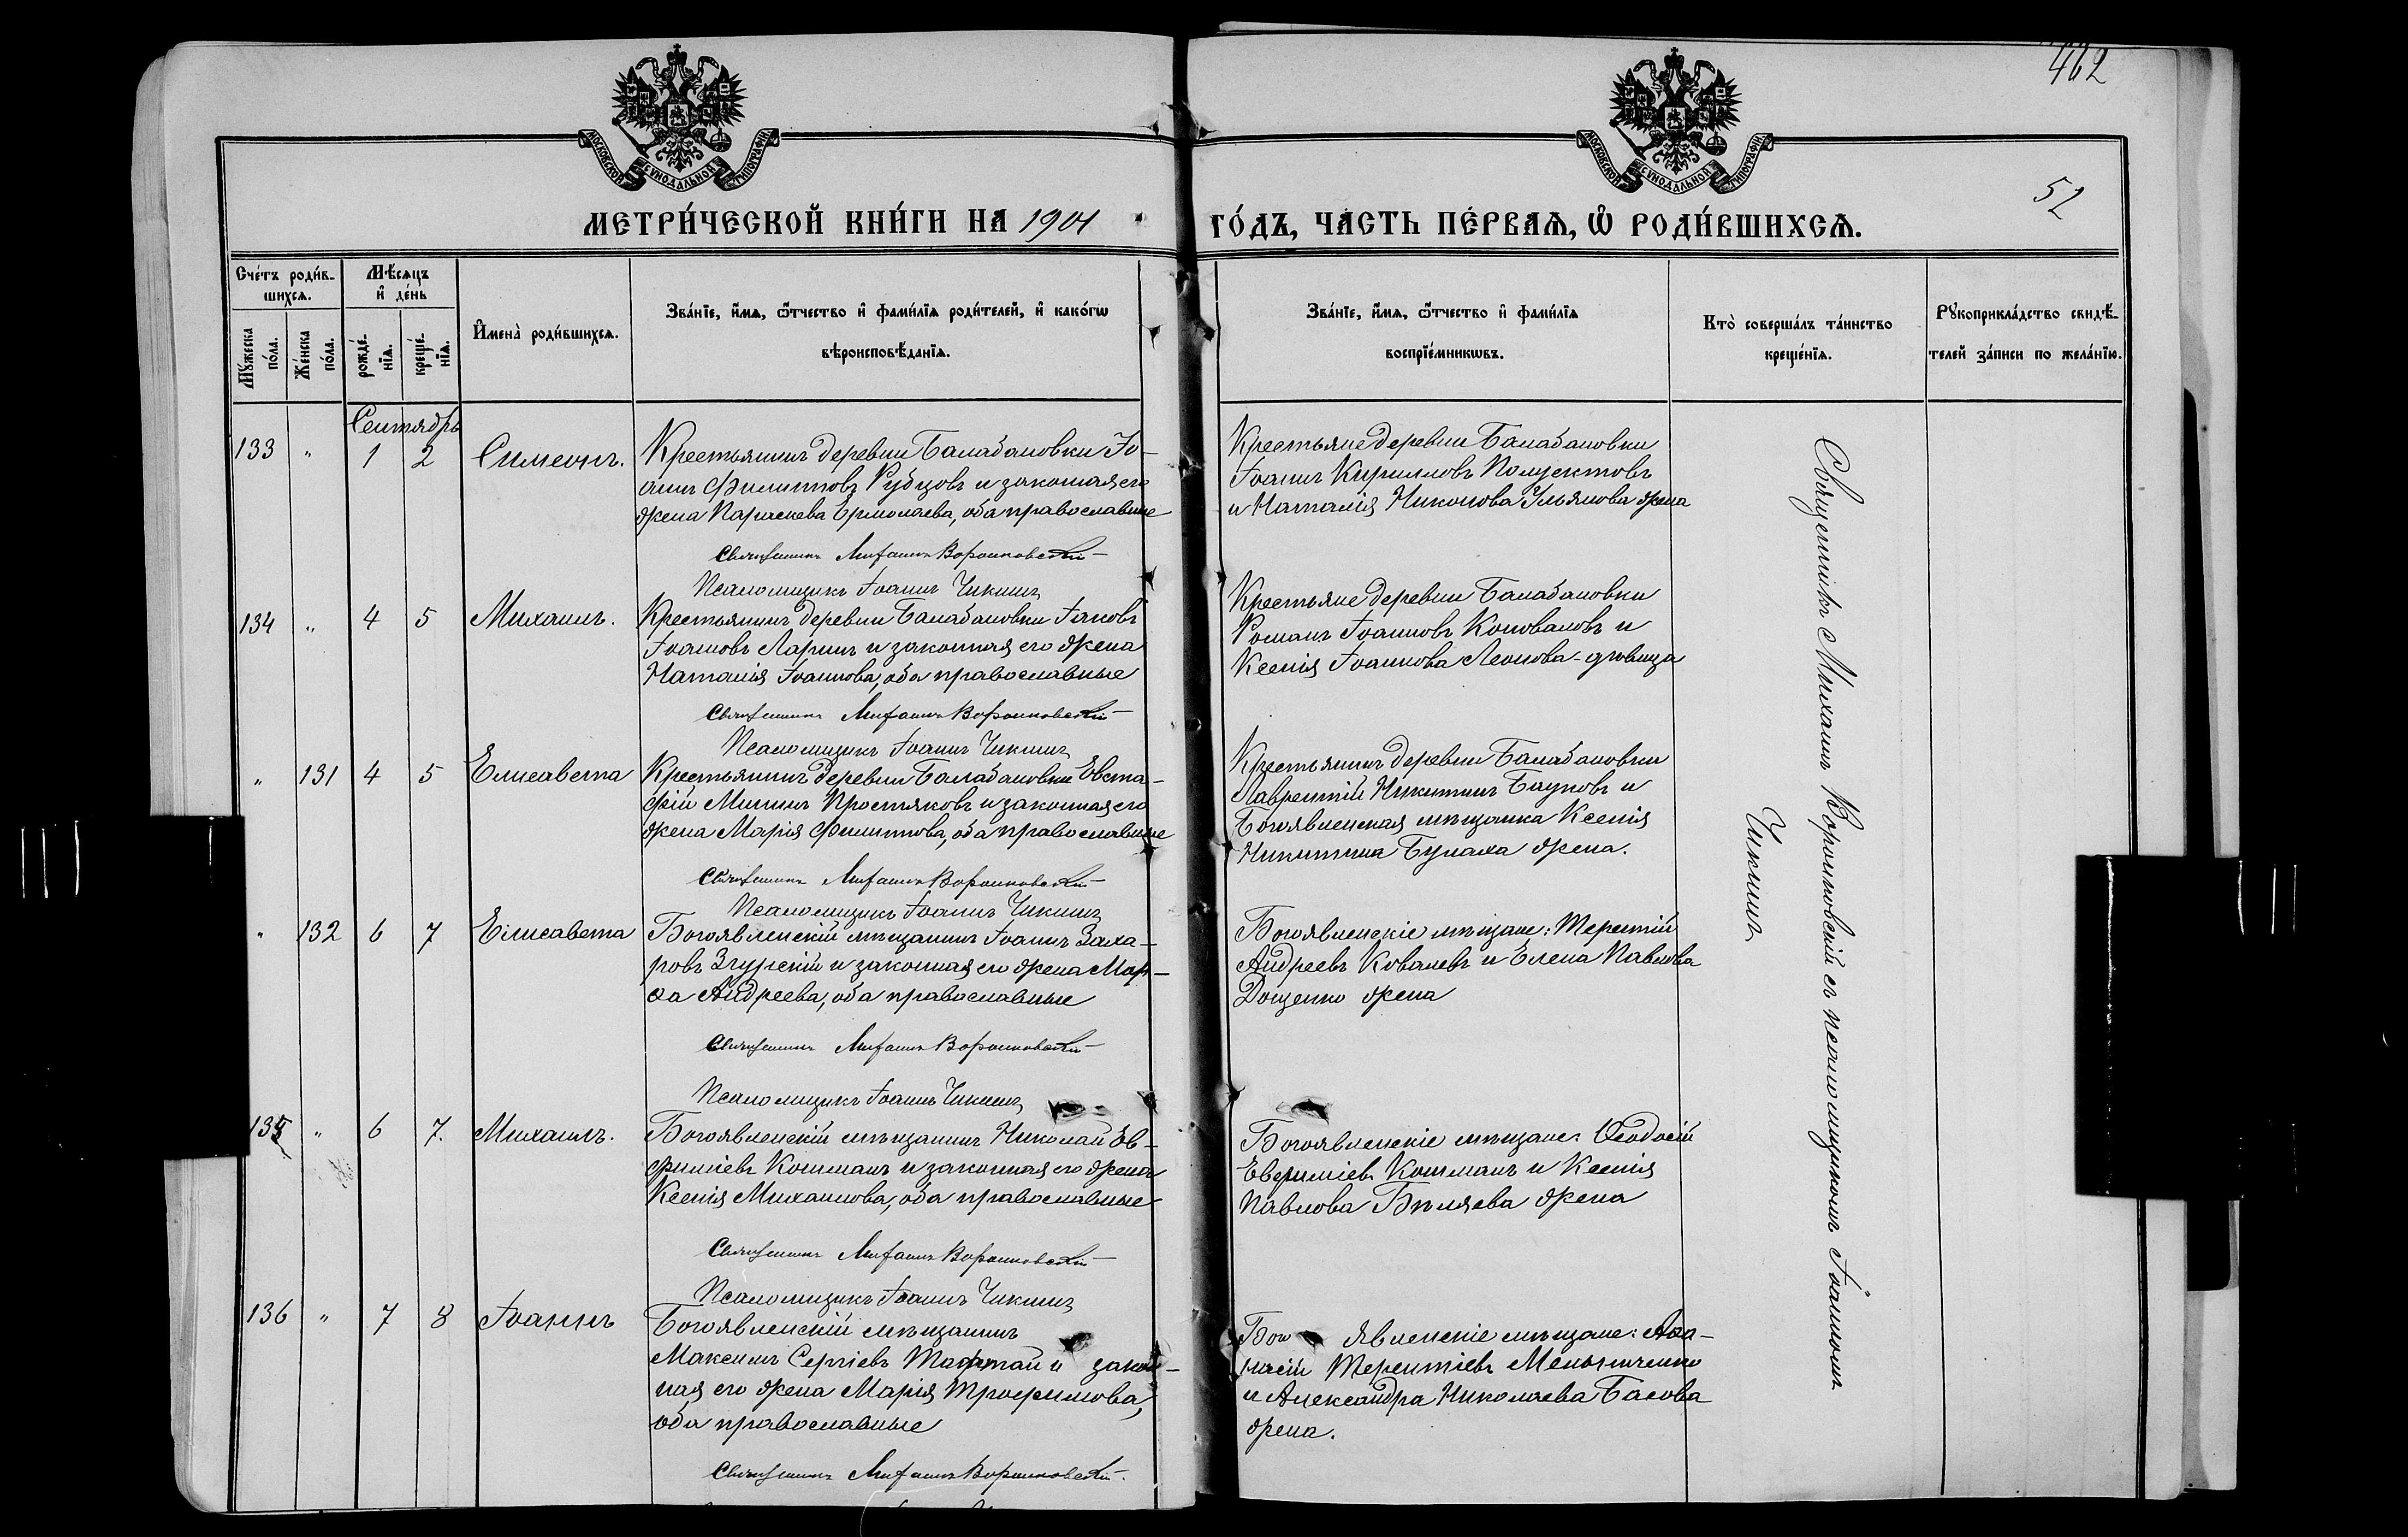 462
52
МОСКОВСКОЙ СѴНОДАЛЬНОЙ ТИПОГРАФІИ
МОСКОВСКОЙ СѴНОДАЛЬНОЙ ТИПОГРАФІИ
МЕТРИ́ЧЕСКОЙ КНИ́ГИ НА 1901 ГО́ДЪ, ЧА́СТЬ ПЕ́РВАѦ, Ѡ҆ РОДИ́ВШИХСѦ.
Сче́тъ роди́в-
шихсѧ.
Мꙋ́жеска
по́ла.
Же́нска
по́ла.
Мѣ́сѧцъ
и҆ де́нь
рожде́-
нїѧ.
креще́-
нїѧ.
И҆мена̀ роди́вшихсѧ.
Зва́нїе, и҆́мѧ, ѻ҆́тчество и҆ фами́лїѧ роди́телей, и҆ како́гѡ
вѣроисповѣ́данїѧ.
Зва́нїе, и҆́мѧ, ѻ҆́тчество и҆ фами́лїѧ
воспрїе́мникѡвъ.
Кто̀ соверша́лъ та́инство
креще́нїѧ.
Рꙋкоприкла́дство свидѣ́-
телей за́писи по жела́нїю.
Сентябрь
133 " 1 2 Симеонъ.
Крестьянинъ деревни Балабановки Іо-
аннъ Филипповъ Рубцовъ и законная его
жена Параскева Ермолаева, оба православные
Священникъ Михаилъ Воронковскій
Псаломщикъ Іоаннъ Чикинъ
Крестьяне деревни Балабановки
Іоаннъ Кирилловъ Полуектовъ
и Наталія Никонова Ульянова жена
134 " 4 5 Михаилъ.
Крестьянинъ деревни Балабановки Іаковъ
Іоанновъ Ларинъ и законная его жена
Наталія Іоаннова, оба православные
Священникъ Михаилъ Воронковскій
Псаломщикъ Іоаннъ Чикинъ
Крестьяне деревни Балабановки
Романъ Іоанновъ Коноваловъ и
Ксенія Іоаннова Леонова - дѣвица
" 131 4 5 Елисавета
Крестьянинъ деревни Балабановки Евста-
фій Мининъ Простяковъ и законная его
жена Марія Филиппова, оба православные
Священникъ Михаилъ Воронковскій
Псаломщикъ Іоаннъ Чикинъ
Крестьянинъ деревни Балабановки
Лаврентій Никитинъ Бауковъ и
Богоявленская мѣщанка Ксенія
Никитина Булаха жена.
" 132 6 7 Елисавета
Богоявленскій мѣщанинъ Іоаннъ Заха-
ровъ Згурскій и законная его жена Мар-
ѳа Андреева, оба православные
Священникъ Михаилъ Воронковскій
Псаломщикъ Іоаннъ Чикинъ
Богоявленскіе мѣщане: Терентій
Андреевъ Ковалевъ и Елена Павлова
Доценко жена
135 " 6 7. Михаилъ.
Богоявленскій мѣщанинъ Николай Ев-
фиміевъ Кошманъ и законная его жена
Ксенія Михаилова, оба православные
Священникъ Михаилъ Воронковскій
Псаломщикъ Іоаннъ Чикинъ
Богоявленскіе мѣщане: Ѳеодосій
Евфиміевъ Кошманъ и Ксенія
Павлова Бѣляева жена
136 " 7 8 Іоаннъ
Богоявленскій мѣщанинъ
Максимъ Сергіевъ и закон-
ная его жена Марія Трофимова,
оба православные
Священникъ Михаилъ Воронковскій.
Богоявленскіе мѣщане: Аѳа-
насій Терентіевъ Мельниченко
и Александра Николаева Басова
жена.
Священникъ Михаилъ Воронковскій съ псаломщикомъ Іоанномъ
Чикинъ